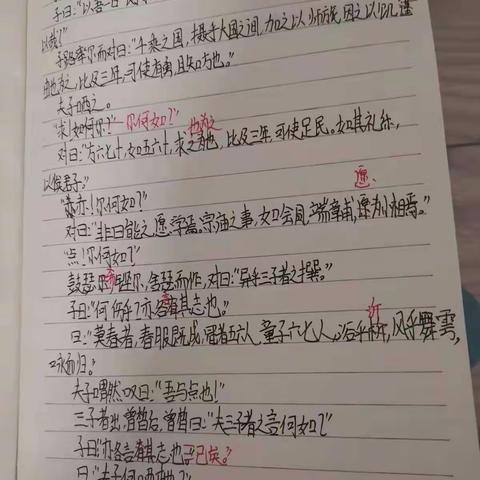 子曰:"以吾一日
以哉?"
子路率尔而对曰:"千乘之国,摄乎大国之间,加之以师旅,因之以饥馑
由也为之,比及三年,可使有勇,且知方也。"
夫子哂之。
"求!如何尔?"—尔何如?"
也为之
对曰:"方六七十,如五六十,求之为也,比及三年,可使足民。如其礼乐,
以俟君子。"
"赤!尔何如?"
愿
对曰:"非曰能之,愿学焉。宗庙之事,如会同,端章甫,愿为小相焉。"
"点!尔何如?"
鼓瑟希,铿尔,舍瑟而作,对曰:"异乎三子者之撰。"
子曰:"何伤乎?亦各言其志也。"
曰:"莫春者,春服既成,冠者五六人,童子六七人,浴乎沂,风乎舞雩,
沂
咏而归。"
夫子喟然叹曰:"吾与点也!"
三子者出,曾皙后,曾皙曰:"夫三子者之言何如?"
子曰:"亦各言其志也已矣。"
曰:"夫子何哂由也?"